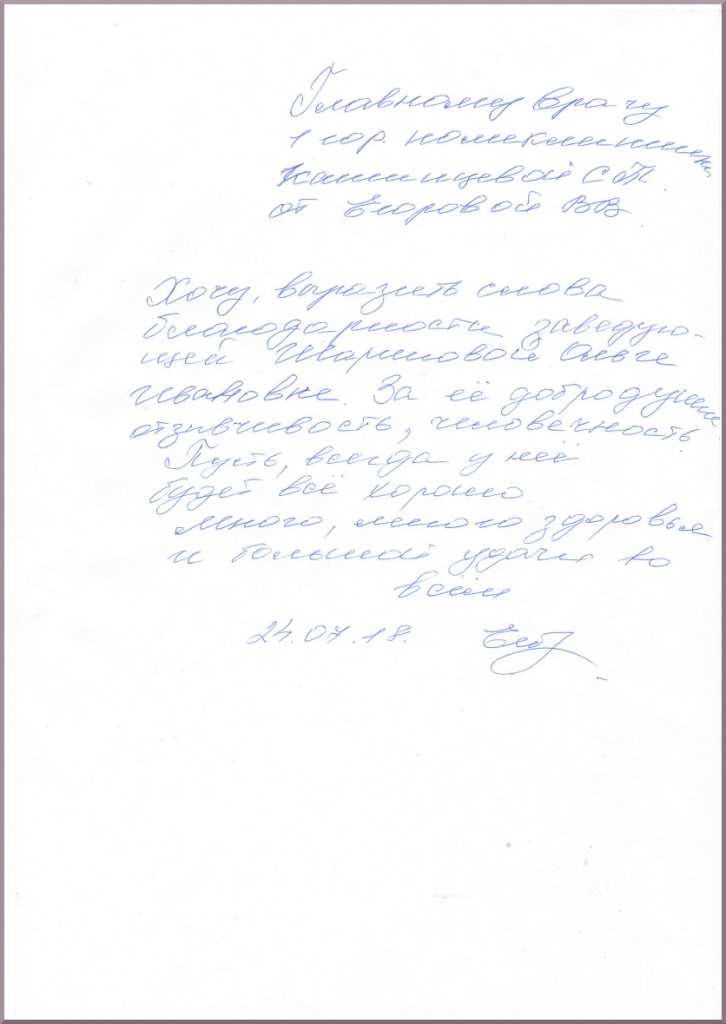 Главному врачу
1 гор. поликлиники
Кашинцевой С.Т.
от Егоровой ВВ
Хочу, выразить слова
благодарности заведую-
щей Шариповой Ольге
Ивановне. За её добродушие
отзывчивость, человечность
Пусть, всегда у неё
будет всё хорошо.
Много, много здоровья
и большой удачи во
всём
24.07.18.